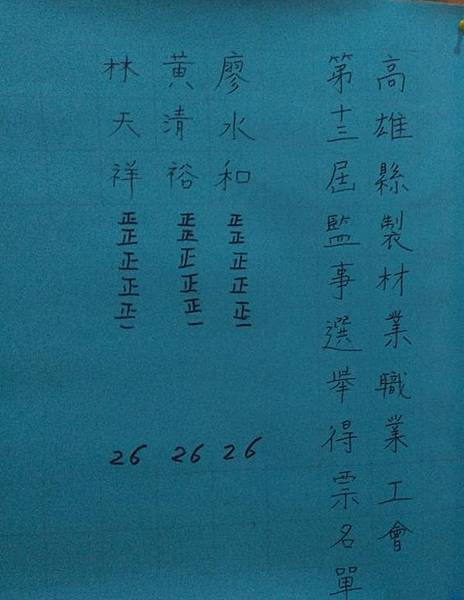 高雄縣製材業職業工會
第十三屆監事選舉得票名單
廖水和 正正正正正一 26
黃清裕 正正正正正一 26
林天祥 正正正正正一 26